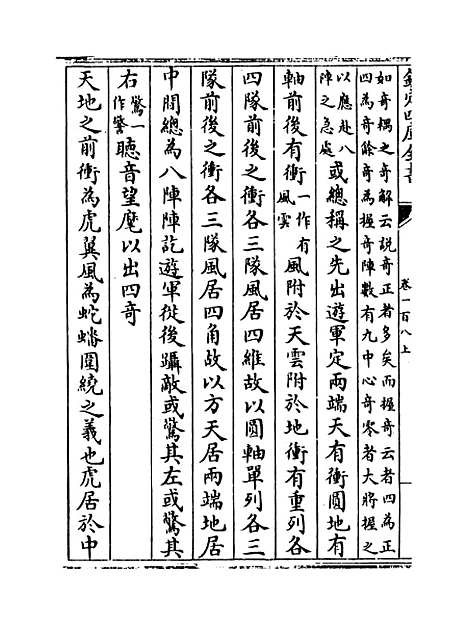 如奇耦之奇解云說奇正者多矣而握奇云者四為正
四為奇餘奇為握奇陣數有九中心奇零者大將握之
以應赴八
陣之急處
或總稱之先出遊軍定兩端天有衝圓地有
軸前後有衝
一作有
風雲
風附於天雲附於地衝有重列各
四隊前後之衝各三隊風居四維故以圓軸單列各三
隊前後之衝各三隊風居四角故以方天居兩端地居
中間總為八陣陣訖遊軍從後躡敵或驚其左或驚其
右
驚一
作警
聽音望麾以出四奇
天地之前衝為虎翼風為蛇蟠圍繞之義也虎居於中
欽定四庫全書
卷一百八上